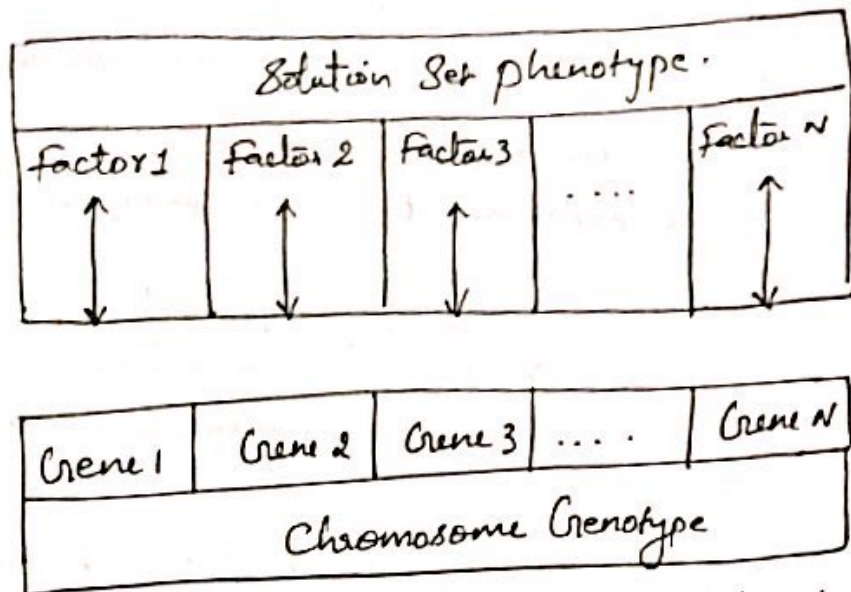 Solution Set phenotype.
Factor 1 Factor 2 Factor 3 .... Factor N
Gene 1 Gene 2 Gene 3 .... Gene N
Chromosome Genotype